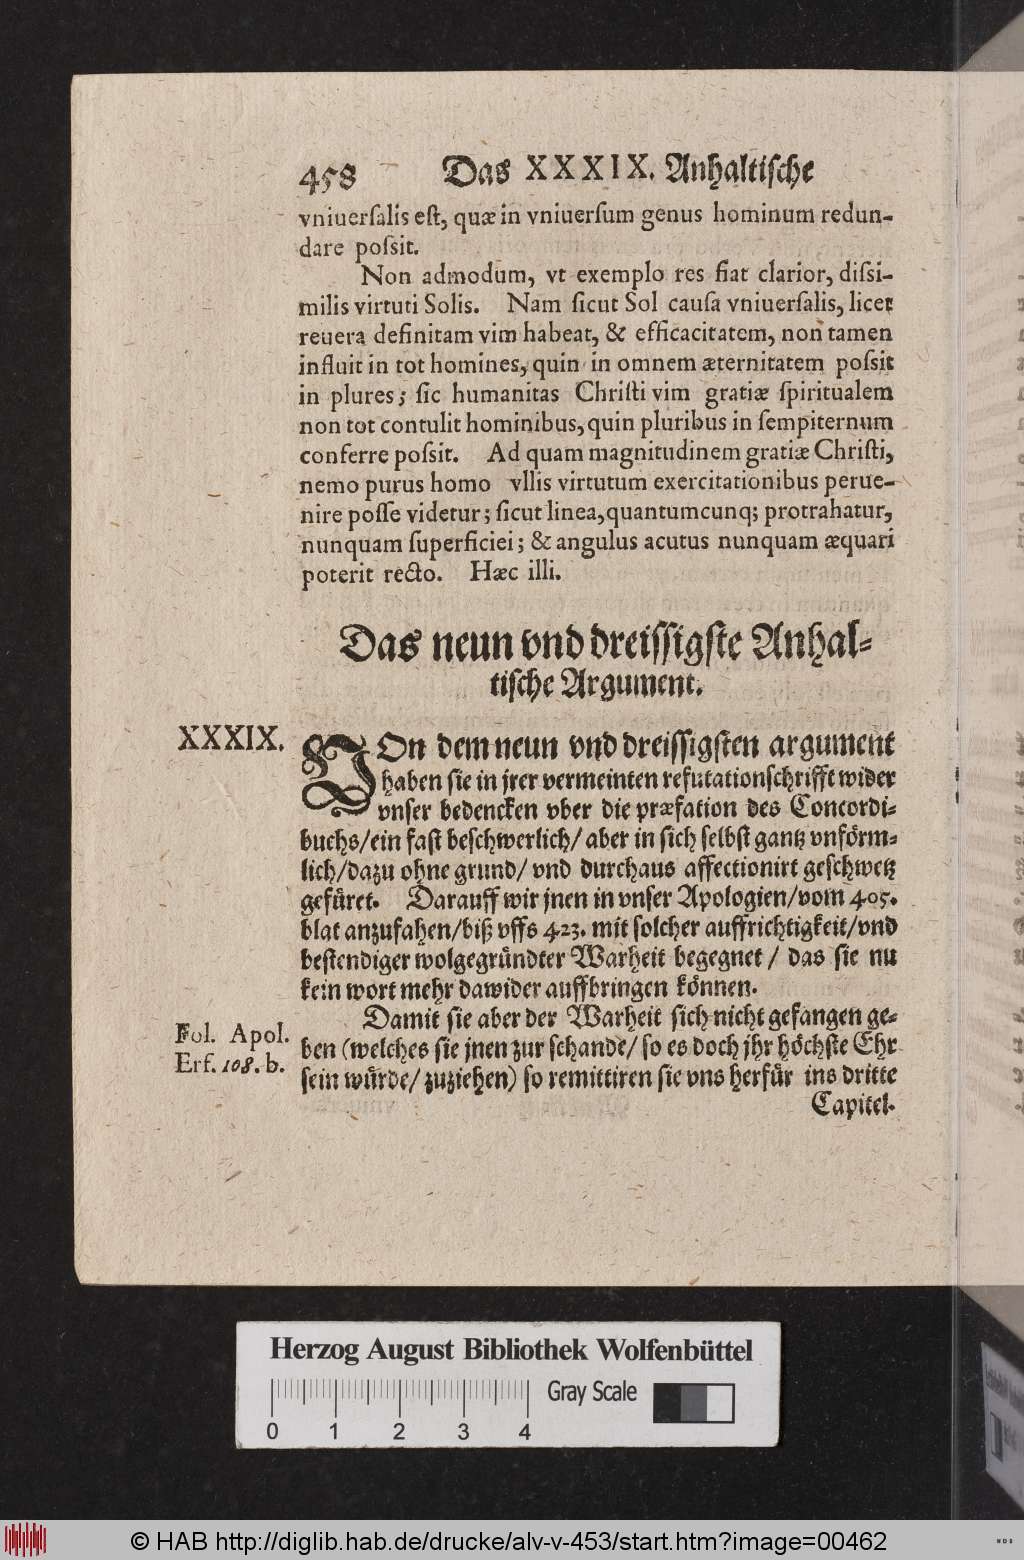 458 Das XXXIX. Anhaltische
vniuersalis est, quæ in vniuersum genus hominum redun-
dare possit.
Non admodum, vt exemplo res fiat clarior, dissi-
milis virtuti Solis. Nam sicut Sol causa vniuersalis, licet
reuera definitam vim habeat, & efficacitatem, non tamen
influit in tot homines, quin in omnem æternitatem possit
in plures; sic humanitas Christi vim gratiæ spiritualem
non tot contulit hominibus, quin pluribus in sempiternum
conferre possit. Ad quam magnitudinem gratiæ Christi,
nemo purus homo vllis virtutum exercitationibus perue-
nire posse videtur; sicut linea, quantumcunq; protrahatur,
nunquam superficiei; & angulus acutus nunquam æquari
poterit recto. Hæc illi.
Das neun vnd dreissigste Anhal-
tische Argument.
XXXIX.
VOn dem neun vnd dreissigsten argument
haben sie in jrer vermeinten refutationschrifft wider
vnser bedencken vber die præfation des Concordi-
buchs/ein fast beschwerlich/ aber in sich selbst gantz vnförm-
lich/dazu ohne grund/ vnd durchaus affectionirt geschwetz
gefüret. Darauff wir jnen in vnser Apologien/vom 405.
blat anzufahen/biß vffs 423. mit solcher auffrichtigkeit/vnd
bestendiger wolgegründter Warheit begegnet / das sie nu
kein wort mehr dawider auffbringen können.
Damit sie aber der Warheit sich nicht gefangen ge-
Fol. Apol.
Erf. 108. b.
ben (welches sie jnen zur schande/ so es doch jhr höchste Ehr
sein würde/ zuziehen) so remittiren sie vns herfür ins dritte
Capitel.
Herzog August Bibliothek Wolfenbüttel
Gray Scale
0 1 2 3 4
© HAB http://diglib.hab.de/drucke/alv-v-453/start.htm?image=00462